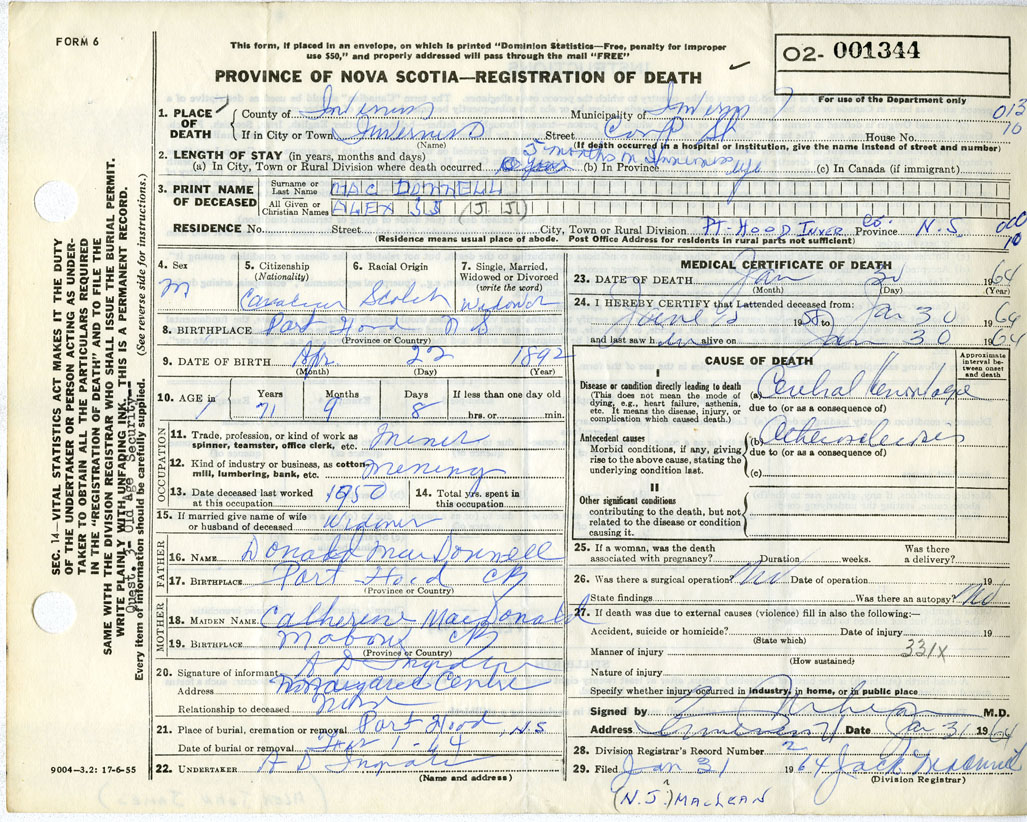 FORM 6
This form, if placed in an envelope, on which is printed "Dominion Statistics—Free, penalty for improper
use $50," and properly addressed will pass through the mail "FREE"
O2- 001344
PROVINCE OF NOVA SCOTIA—REGISTRATION OF DEATH
For use of the Department only
1. PLACE OF DEATH
County of Inverness Municipality of Inverness
013
10
If in City or Town Inverness Street House No.
(Name) (If death occurred in a hospital or institution, give the name instead of street and number)
2. LENGTH OF STAY (in years, months and days) 5 months in Inverness
(a) In City, Town or Rural Division where death occurred (b) In Province life (c) In Canada (if immigrant)
3. PRINT NAME OF DECEASED
Surname or Last Name MAC DONNELL
All Given or Christian Names ALEX JJ (J. J.)
RESIDENCE No. Street City, Town or Rural Division PT-HOOD INVER Co. Province N.S.
(Residence means usual place of abode. Post Office Address for residents in rural parts not sufficient)
10
4. Sex M
5. Citizenship (Nationality) Canadian
6. Racial Origin Scotch
7. Single, Married, Widowed or Divorced (write the word) Widower
8. BIRTHPLACE Port Hood N S
(Province or County)
9. DATE OF BIRTH Apr. 22 1892
(Month) (Day) (Year)
10. AGE in Years 71 Months 9 Days 8 If less than one day old hrs. or min.
OCCUPATION
11. Trade, profession, or kind of work as spinner, teamster, office clerk, etc. Miner
12. Kind of industry or business, as cotton mill, lumbering, bank, etc. Mening
13. Date deceased last worked at this occupation 1950
14. Total yrs. spent in this occupation
15. If married give name of wife or husband of deceased Widower
FATHER
16. NAME Donald MacDonnell
17. BIRTHPLACE Port Hood CB
(Province or County)
MOTHER
18. MAIDEN NAME Catherine MacDonald
19. BIRTHPLACE Mabou CB
(Province or County)
20. Signature of informant A D
Address Margaree Centre
Relationship to deceased None
21. Place of burial, cremation or removal Port Hood, N.S.
Date of burial or removal Feb 1-64
22. UNDERTAKER A D
(Name and address)
9004—3.2: 17-6-55
MEDICAL CERTIFICATE OF DEATH
23. DATE OF DEATH Jan 31 1964
(Month) (Day) (Year)
24. I HEREBY CERTIFY that I attended deceased from:
June 1958 to Jan 30 1964
and last saw him alive on Jan 30 1964
CAUSE OF DEATH
Approximate interval between onset and death
I
Disease or condition directly leading to death
(This does not mean the mode of dying, e.g., heart failure, asthenia, etc. It means the disease, injury, or complication which caused death.)
(a) Cerebral Hemorrhage
due to (or as a consequence of)
Antecedent causes
Morbid conditions, if any, giving rise to the above cause, stating the underlying condition last.
(b) Atherosclerosis
due to (or as a consequence of)
(c)
II
Other significant conditions
contributing to the death, but not related to the disease or condition causing it.
25. If a woman, was the death associated with pregnancy? Duration weeks. Was there a delivery?
26. Was there a surgical operation? No Date of operation 19
State findings Was there an autopsy? No
27. If death was due to external causes (violence) fill in also the following:—
Accident, suicide or homicide? Date of injury 19
(State which)
Manner of injury 331X
(How sustained)
Nature of injury
Specify whether injury occurred in industry, in home, or in public place
Signed by M.D.
Address Inverness Date Jan 31 1964
28. Division Registrar's Record Number 2
29. Filed Jan 31 1964 Jack
(Division Registrar)
(N.J.) MACLEAN
SEC. 14—VITAL STATISTICS ACT MAKES IT THE DUTY
OF THE UNDERTAKER OR PERSON ACTING AS UNDER-
TAKER TO OBTAIN ALL THE PARTICULARS REQUIRED
IN THE "REGISTRATION OF DEATH" AND TO FILE THE
SAME WITH THE DIVISION REGISTRAR WHO SHALL ISSUE THE BURIAL PERMIT.
WRITE PLAINLY WITH UNFADING INK. THIS IS A PERMANENT RECORD.
Quest. 3- Old Age Security--
Every item of information should be carefully supplied. (See reverse side for instructions.)